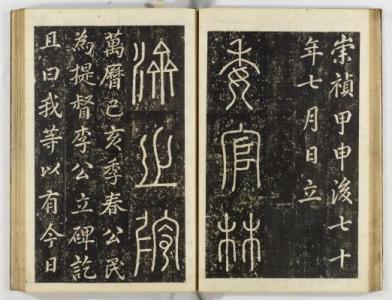 崇禎甲申後七十
年七月日立
委官林
萬曆己亥季春公民
為提督李公立碑訖
且曰我等以有今日